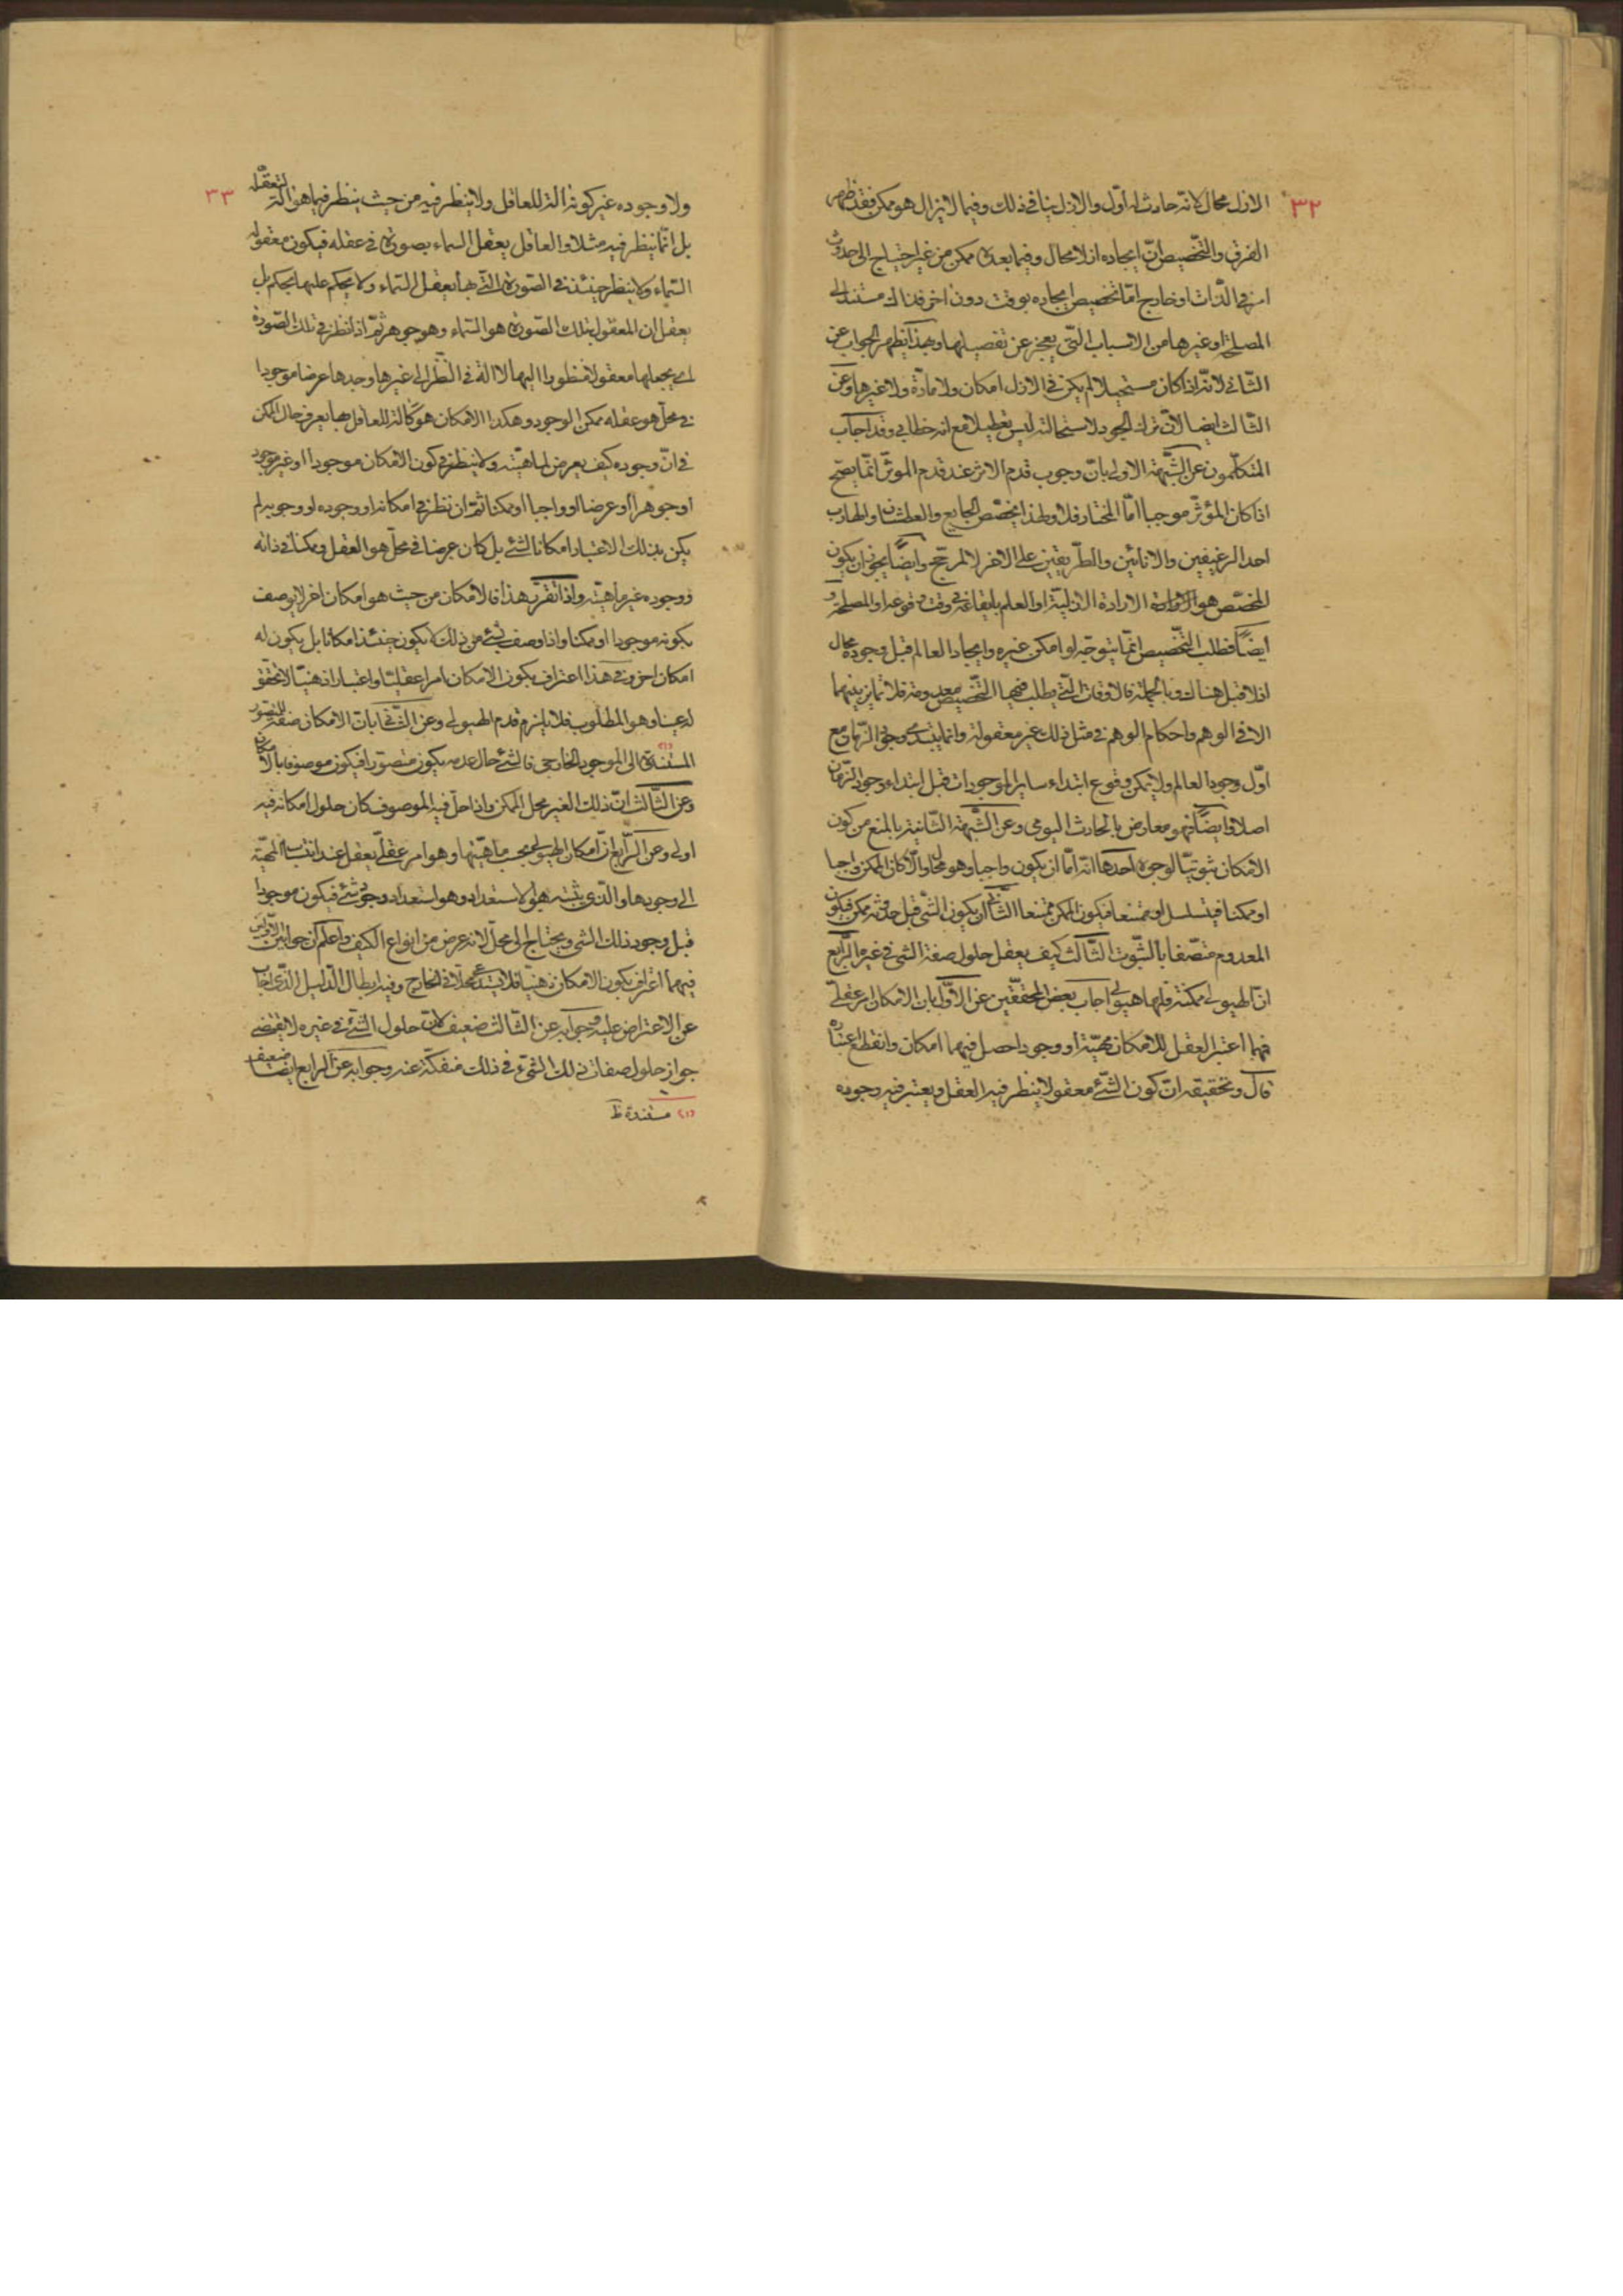 ٣٢
الازل محال لانه حادث له اوّل والازل ينافى ذلك وفيما لايزال هو ممكن فقد ظهر
الفرق والتخصيص انّ ايجاده ازلا محال وفيما بعده ممكن من غير احتياج الى حدوث
امر فى الذّات او خارج امّا تخصيص ايجاده بوقت دون اخر فذاك مستند الى
المصلحة او غيرها من الاسباب الّتى يعجز عن تفصيلها وبهذا يظهر الجواب عن
الثّانى لانّه اذا كان مستحيلا لم يكن فى الازل امكان ولا مادّة ولا غيرها وعن
الثّالث ايضا لانّ ترك الجود لاستحالته ليس تعطيلا مع انه خطابى وقد اجاب
المتكلّمون عن الشّبهة الاولى بانّ وجوب قدم الاثر عند قدم الموثّر انّما يصح
اذا كان المؤثّر موجبا امّا المختار فلا ولهذا يخصّص الجايع والعطشان والهارب
احد الرغيفين والانائين والطّريقين على الاخر لا لمرجّح وايضًا يجوز ان يكون
المخصّص هو الارادة الازليّة او العلم بايقاعه فى وقت وقوعه او المصلحة و
ايضًا فطلب التّخصيص انّما يتوجّه لو امكن غيره وايجاد العالم قبل وجوده محال
اذ لا قبل هناك وبالجملة فالاوقات الّتى يطلب فيها التّخصيص معدومة فلا تمايز بينهما
الا فى الوهم واحكام الوهم فى مثل ذلك غير معقولة وانما يبتدى وجود الزّمان مع
اوّل وجود العالم ولا يمكن وقوع ابتداء ساير الموجودات قبل ابتداء وجود الزّمان
اصلا وايضًا فهو معارض بالحادث اليومى وعن الشّبهة الثّانية بالمنع من كون
الامكان ثبوتيّا لوجوه احدها انّه امّا ان يكون واجبا وهو محال والّا كان الممكن واجبا
او ممكنا فيتسلسل او ممتنعا فيكون الممكن ممتنعا الثّانى ان يكون الشّى قبل حدوثه ممكن فيكون
المعدوم متّصفا بالثّبوت الثّالث كيف يعقل حلول صفة الشى فى غيره الرّابع
انّ الهيولى ممكنة فلها هيولى اجاب بعض المحقّقين عن الاوّل بان الامكان امر عقلىّ
فهما اعتبر العقل للامكان مهيّة او وجودا حصل فيهما امكان وانقطع باعتباره
قال وتحقيقه انّ كون الشّئ معقولا ينظر فيه العقل ويعتبر فيه وجوده
٣٣
ولا وجوده غير كونه آلة للعاقل ولا ينظر فيه من حيث ينظر فيما هو آلة لتعقّله
بل انّما ينظر فيه مثلا والعاقل يعقل السماء بصورة فى عقله فيكون معقوله
السّماء ولا ينظر حينئذ فى الصّورة الّتى بها يعقل السّماء ولا يحكم عليها بحكم بل
يعقل ان المعقول بتلك الصّورة هو السّماء وهو جوهر ثمّ اذا نظر فى تلك الصّورة
اى يجعلها معقولا منظورا اليها لا الة فى النّظر الى غيرها وجدها عرضا موجودا
فى محلّ هو عقله ممكن الوجود وهكذا الامكان هو كالة للعاقل بها يعرف حال الممكن
فى انّ وجوده كيف يعرض لماهيّته ولا ينظر فى كون الامكان موجودا او غير موجود
او جوهرا او عرضا او واجبا او ممكنا ثمّ ان نظر فى امكانه او وجوده او وجوبه لم
يكن بذلك الاعتبار امكانا لشئ بل كان عرضا فى محلّ هو العقل وممكنا فى ذاته
ووجوده غير ماهيّته واذا تقرّر هذا فالامكان من حيث هو امكان اخر لا يوصف
بكونه موجودا او ممكنا واذا وصف بشئ من ذلك لا يكون حينئذ امكانا بل يكون له
امكان اخر وفى هذا اعتراف بكون الامكان امرا عقليّا واعتبارا ذهنيّا لا تحقّق
له عينا وهو المطلوب فلا يلزم قدم الهيولى وعن الثّانى بانّ الامكان صفة للمتصوّر
المستندة (١) الى الموجود الخارجى فالشئ حال عدمه يكون متصوّرا فيكون موصوفا بالامكان
وعن الثّالث انّ ذلك الغير محل الممكن واذا حلّ فيه الموصوف كان حلول امكانه فيه
اولى وعن الرّابع انّ امكان الهيولى بحسب ماهيّتها وهو امر عقلىّ يعقل عند انتساب المهيّة
الى وجودها والّذى يثبته هو الاستعداد وهو استعداد وجود شئ فيكون موجودا
قبل وجود ذلك الشى ويحتاج الى محلّ لانه عرض من انواع الكيف واعلم انّ جوابيه الاوّلين
فيهما اعتراف بكون الامكان ذهنيّا فلا يستدعى محلّا فى الخارج وفيه ابطال الدّليل الّذى اجاب
عن الاعتراض عليه وجوابه عن الثّالث ضعيف لانّ حلول الشّئ فى غيره لا يقتضى
جواز حلول صفات ذلك الشّىء فى ذلك منفكّة عنه وجوابه عن الرابع ايضا ضعيف
(١) مستندة ظ